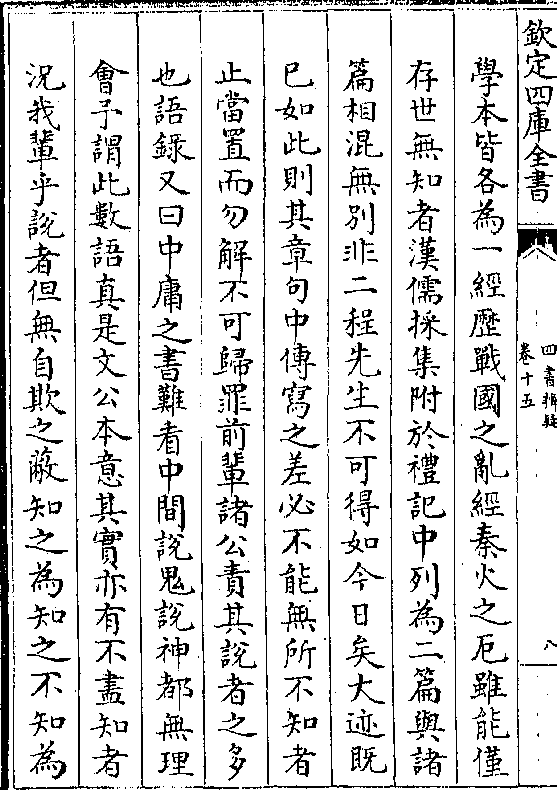 欽定四庫全書
四書辨疑
卷十五
八
學本皆各為一經歷戰國之亂經秦火之厄雖能僅
存世無知者漢儒採集附於禮記中列為二篇與諸
篇相混無別非二程先生不可得如今日矣大迹既
已如此則其章句中傳寫之差必不能無所不知者
止當置而勿解不可歸罪前輩諸公責其說者之多
也語錄又曰中庸之書難看中間說鬼說神都無理
會予謂此數語真是文公本意其實亦有不盡知者
況我輩乎說者但無自欺之蔽知之為知之不知為